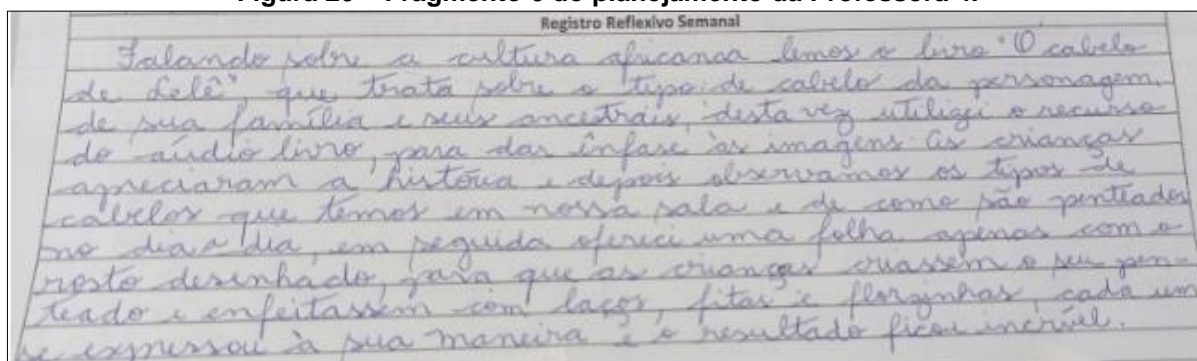 Registro Reflexivo Semanal
Falando sobre a cultura africana lemos o livro "O cabelo
de Lelê", que trata sobre o tipo de cabelo da personagem,
de sua família e seus ancestrais, desta vez utilizei o recurso
do audio livro, para dar ênfase às imagens. As crianças
apreciaram a história e depois observamos os tipos de
cabelos que temos em nossa sala e de como são penteados
no dia a dia, em seguida ofereci uma folha apenas com o
rosto desenhado, para que as crianças criassem o seu pen-
teado e enfeitassem com laços, fitas e florzinhas, cada um
se expressou à sua maneira e o resultado ficou incrível.